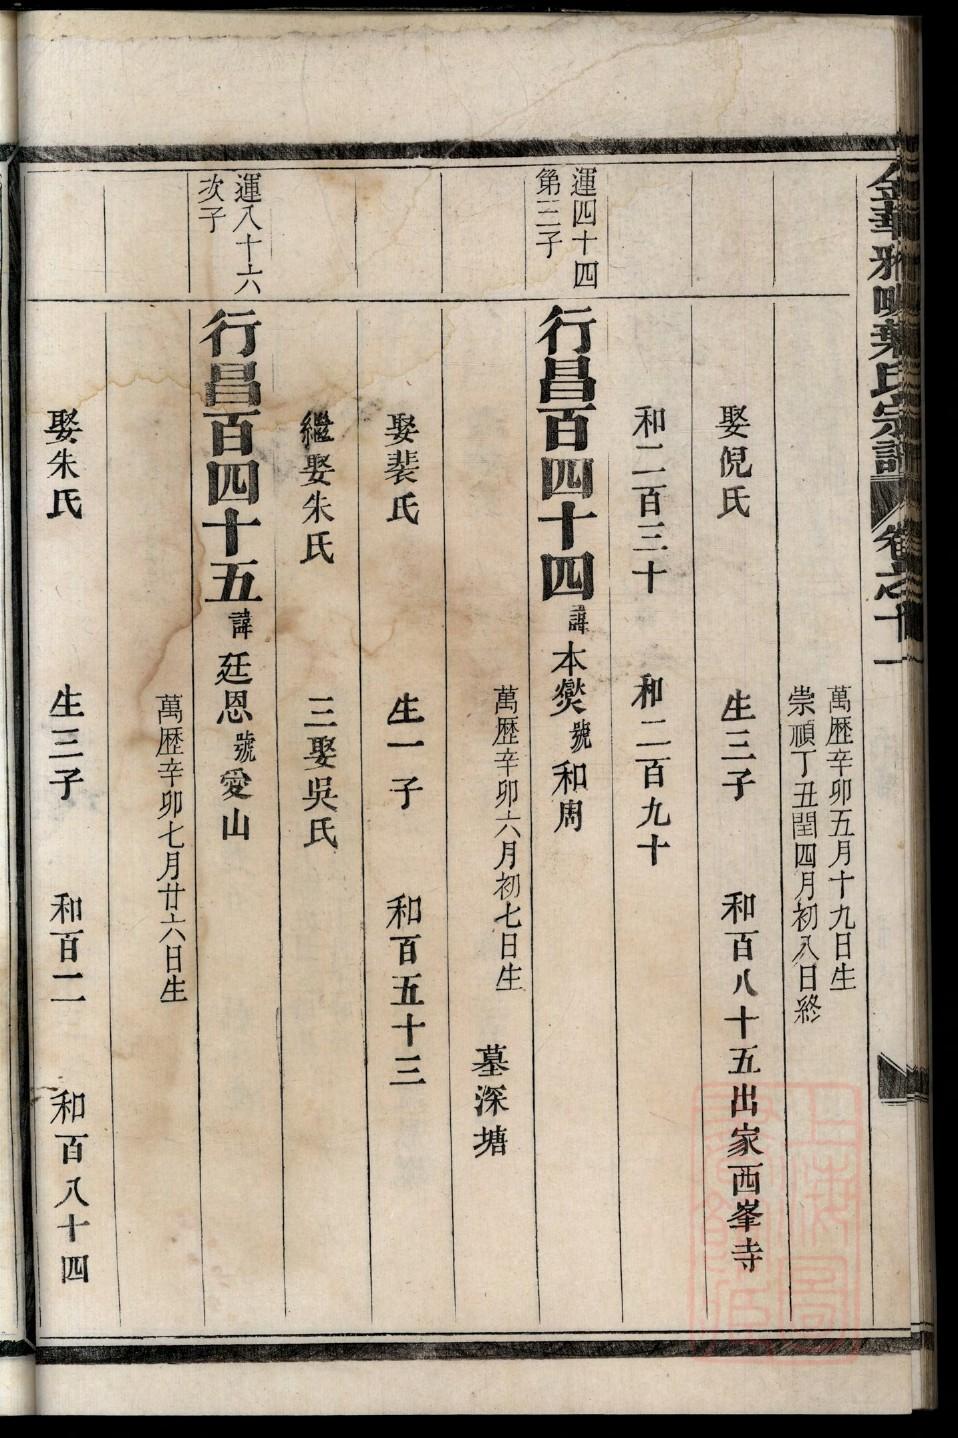 金華雅畈葉氏宗譜 卷之十一
萬歷辛卯五月十九日生
崇禎丁丑閏四月初八日終
娶倪氏 生三子 和百八十五出家西峯寺
和二百三十 和二百九十
運四十四
第三子
行昌百四十四 諱本爕號和周
萬歷辛卯六月初七日生 墓深塘
娶裴氏 生一子 和百五十三
繼娶朱氏 三娶吳氏
運八十六
次子
行昌百四十五 諱廷恩號愛山
萬歷辛卯七月廿六日生
娶朱氏 生三子 和百二 和百八十四